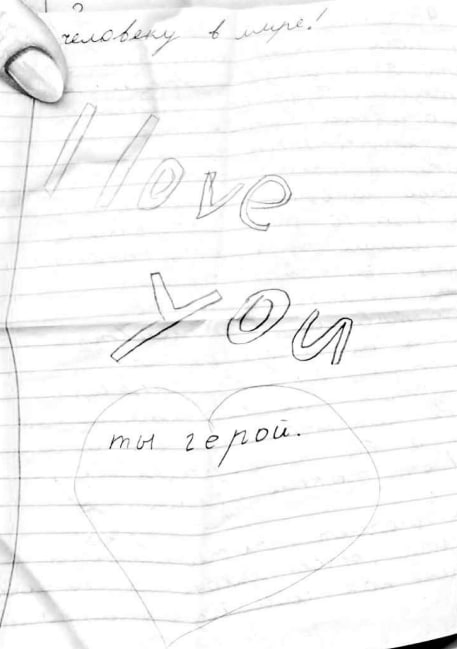 человеку в мире!
I love
you
ты герой.